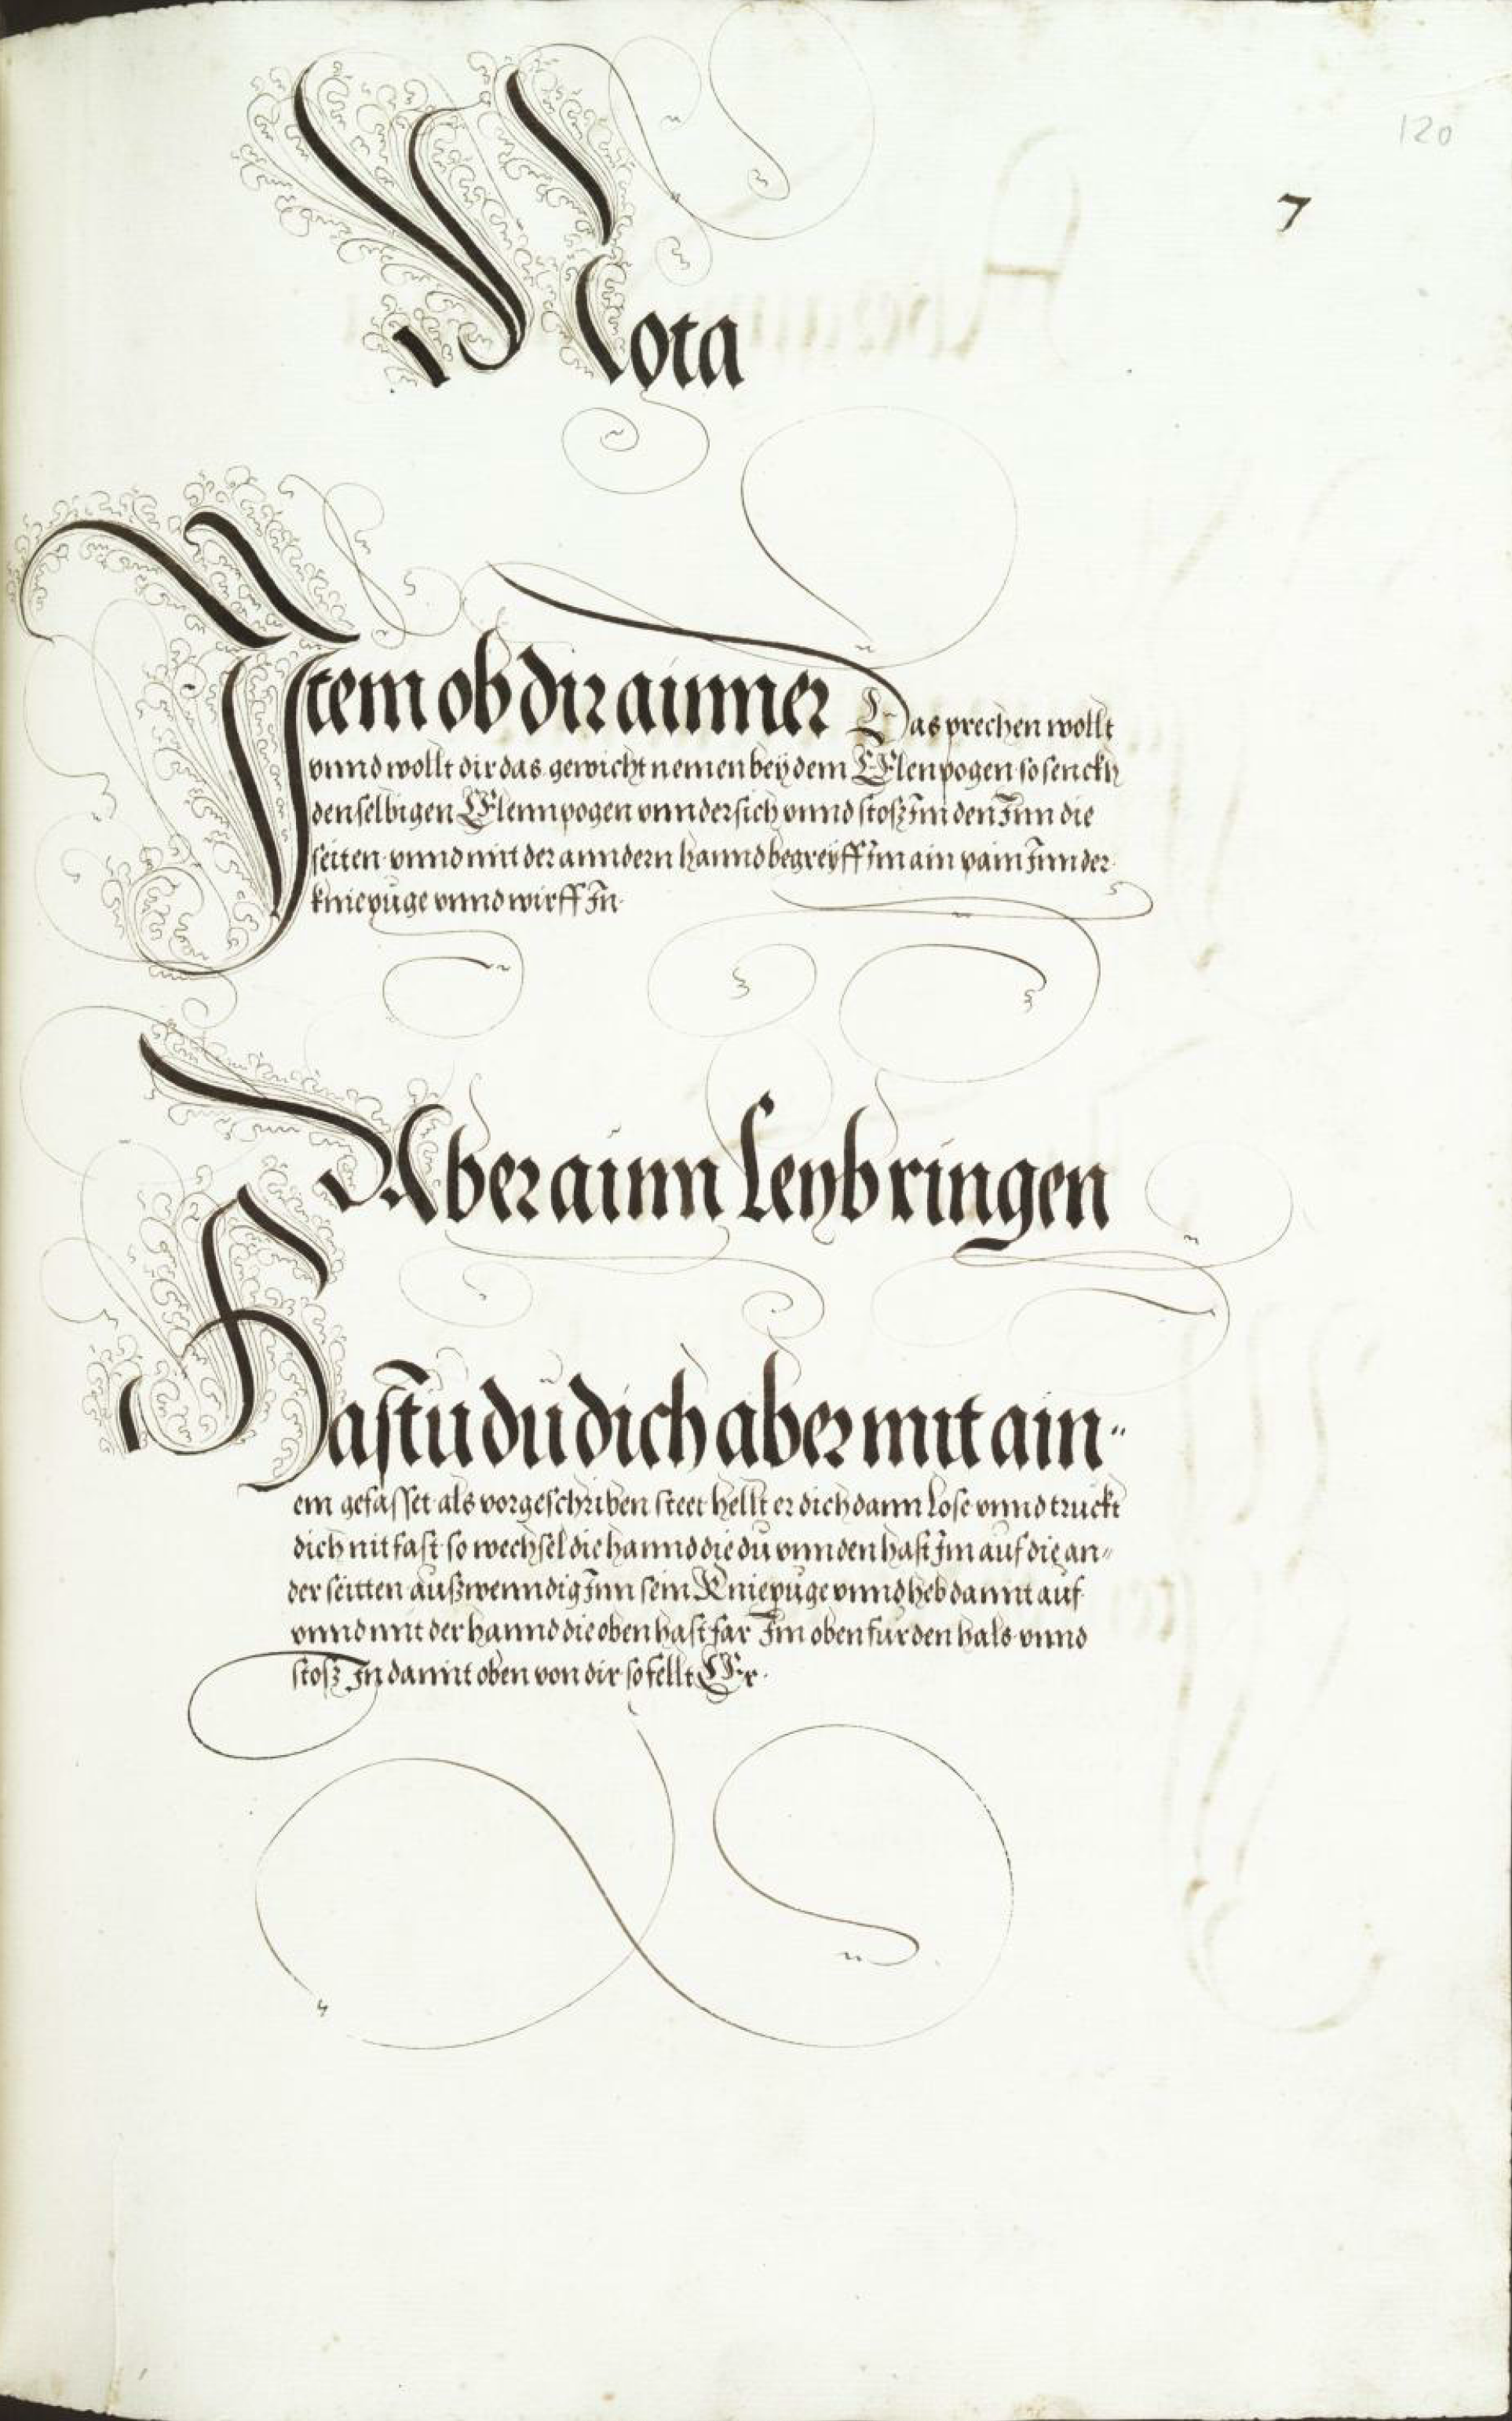 120
7
Nota
Item ob dir ainner Das prechen wollt
vnnd wollt dir das gewicht nemen bey dem Elenpogen so senckh
denselbigen Elennpogen vnndersich vnnd stosz Im den Inn die
seiten vnnd mit der anndern hannd begreyff Im ain pain Inn der
kniepúge vnnd wirff In
Aber ainn Leyb ringen
Hastu dú dich aber mit ain"
em gefasset als vorgeschriben steet hellt er dich dann Lose vnnd truckt
dich nit fast so wechsel die hannd die dú vnnden hast Im auf die an"
der seitten außwenndig Inn sein Kniepúge vnnd heb damit auf
vnnd mit der hannd die oben hast far Im oben fúr den hals vnnd
stosz In damit oben von dir so fellt Er.